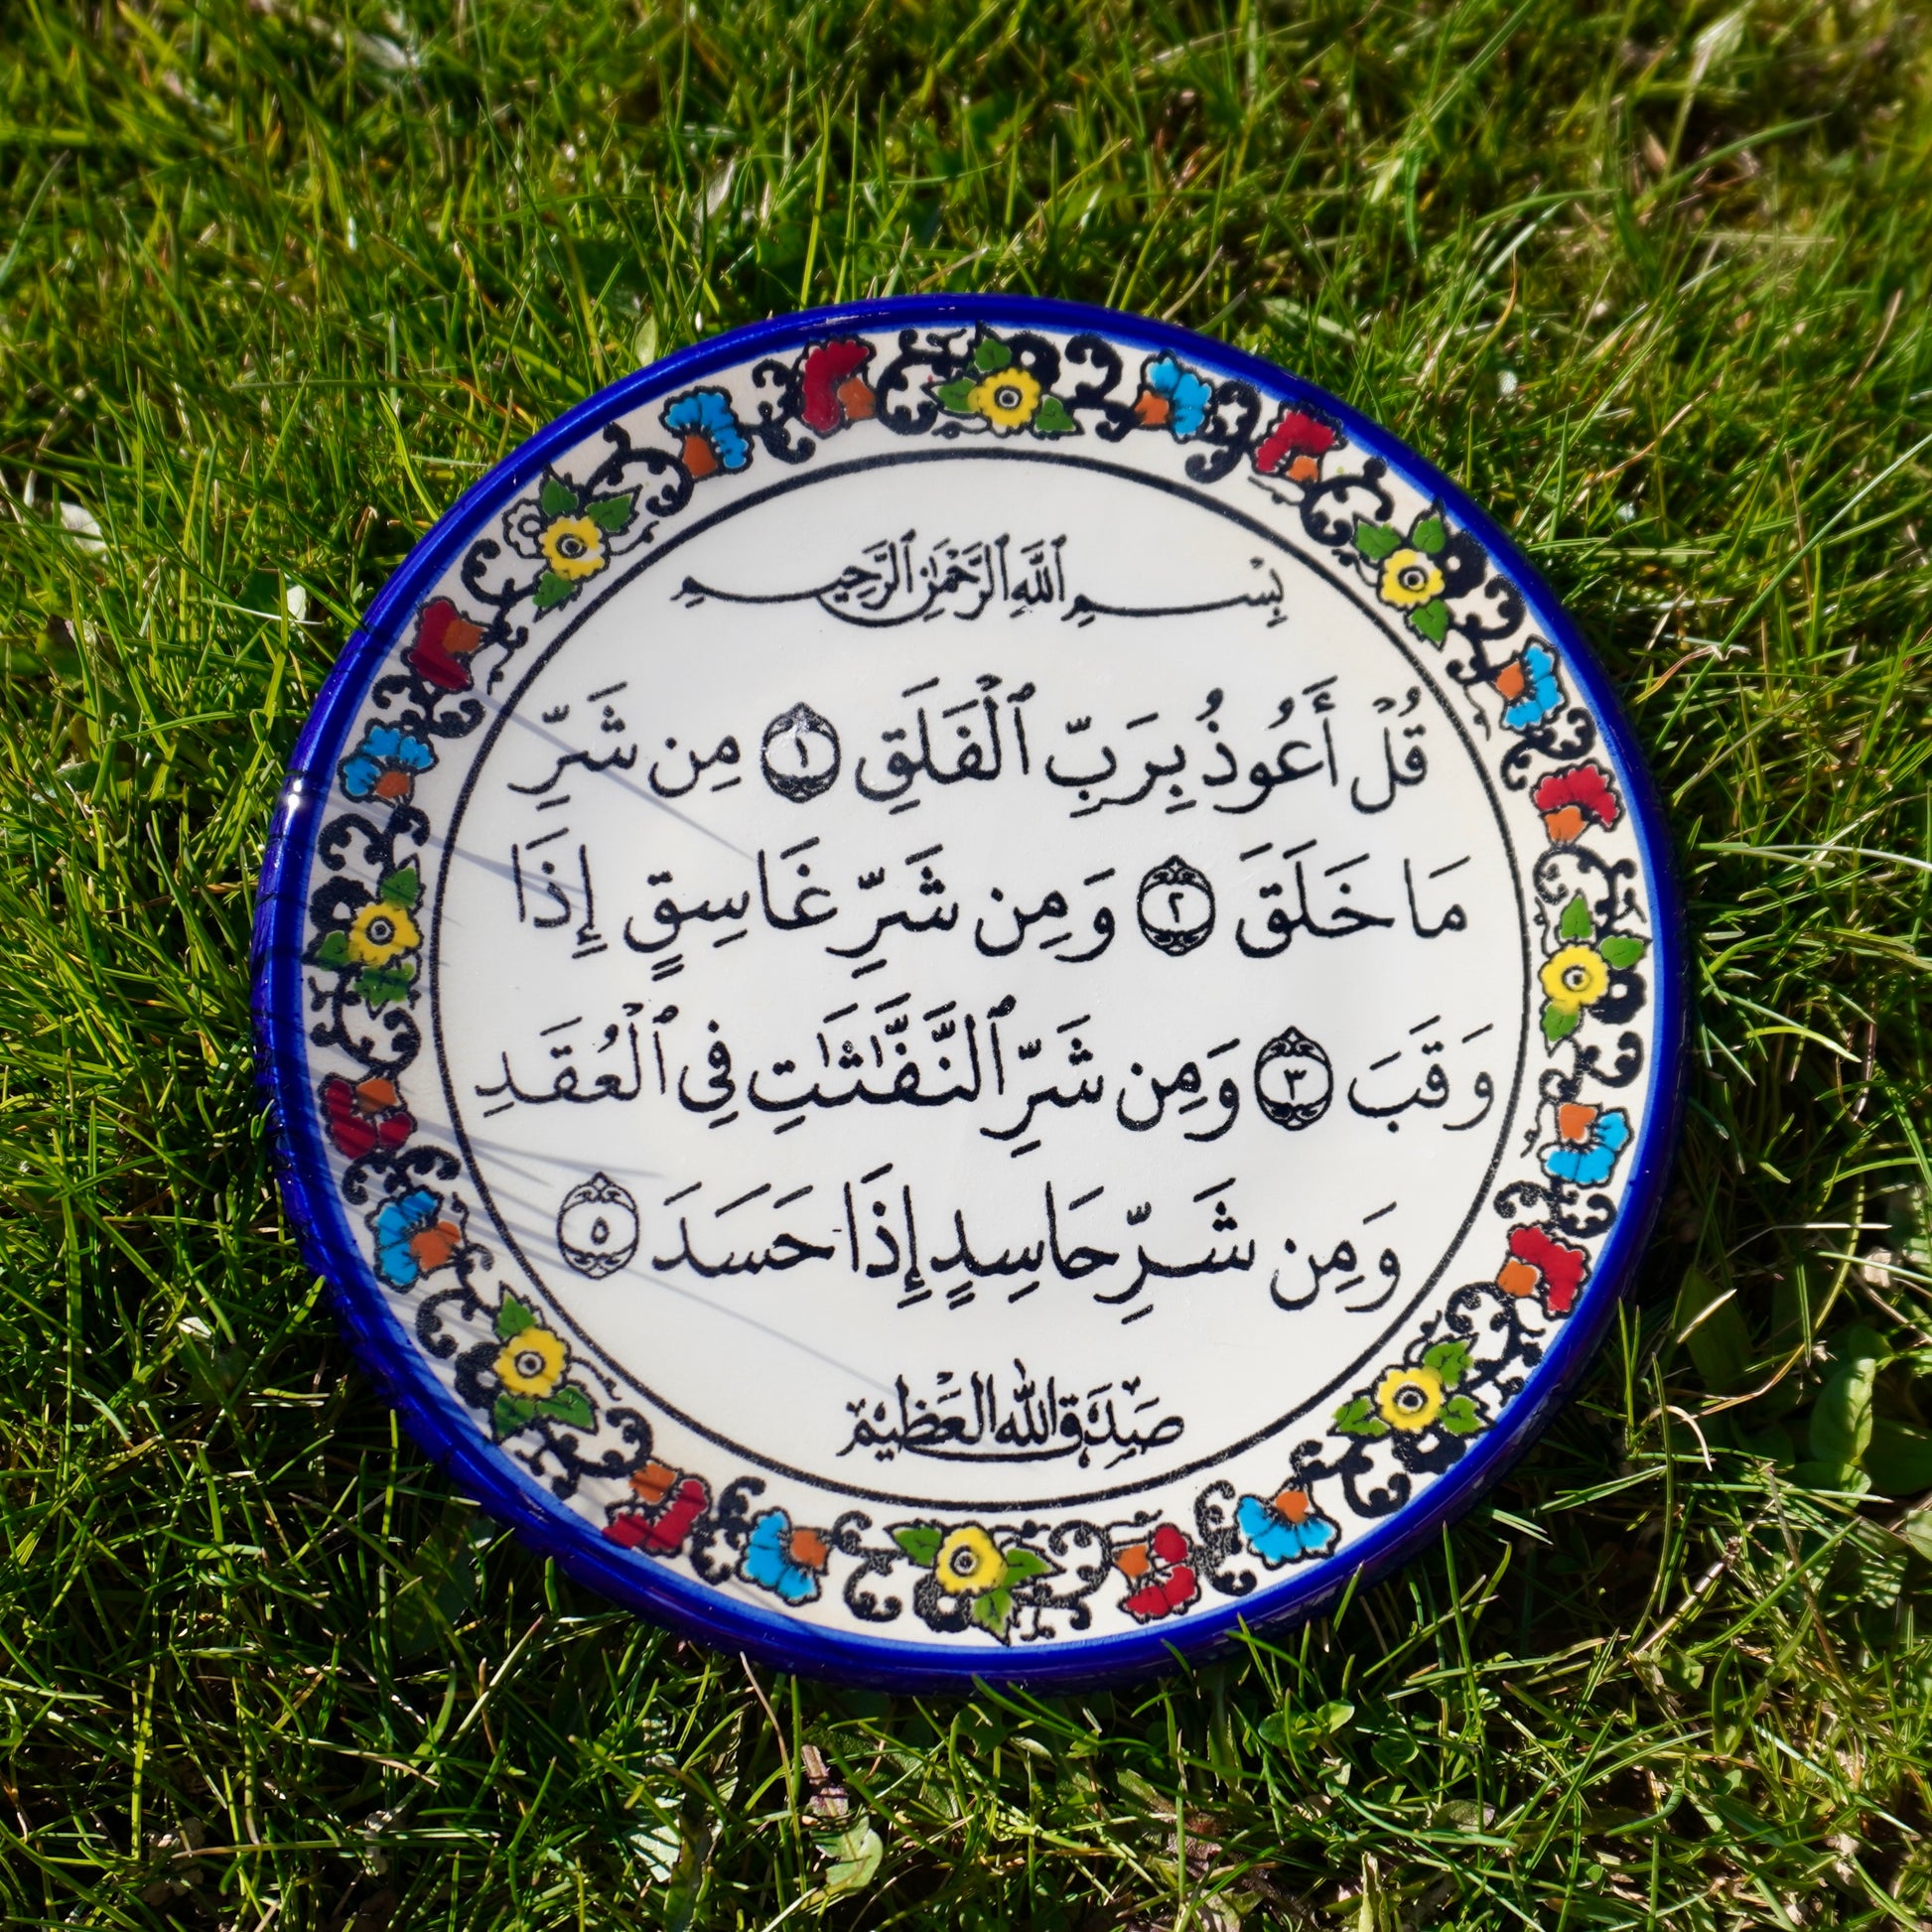 بِسْمِ ٱللَّهِ ٱلرَّحْمَٰنِ ٱلرَّحِيمِ
قُلْ أَعُوذُ بِرَبِّ ٱلْفَلَقِ ١ مِن شَرِّ
مَا خَلَقَ ٢ وَمِن شَرِّ غَاسِقٍ إِذَا
وَقَبَ ٣ وَمِن شَرِّ ٱلنَّفَّٰثَٰتِ فِى ٱلْعُقَدِ
وَمِن شَرِّ حَاسِدٍ إِذَا حَسَدَ ٥
صَدَقَ اللّٰه الْعَظِيْم